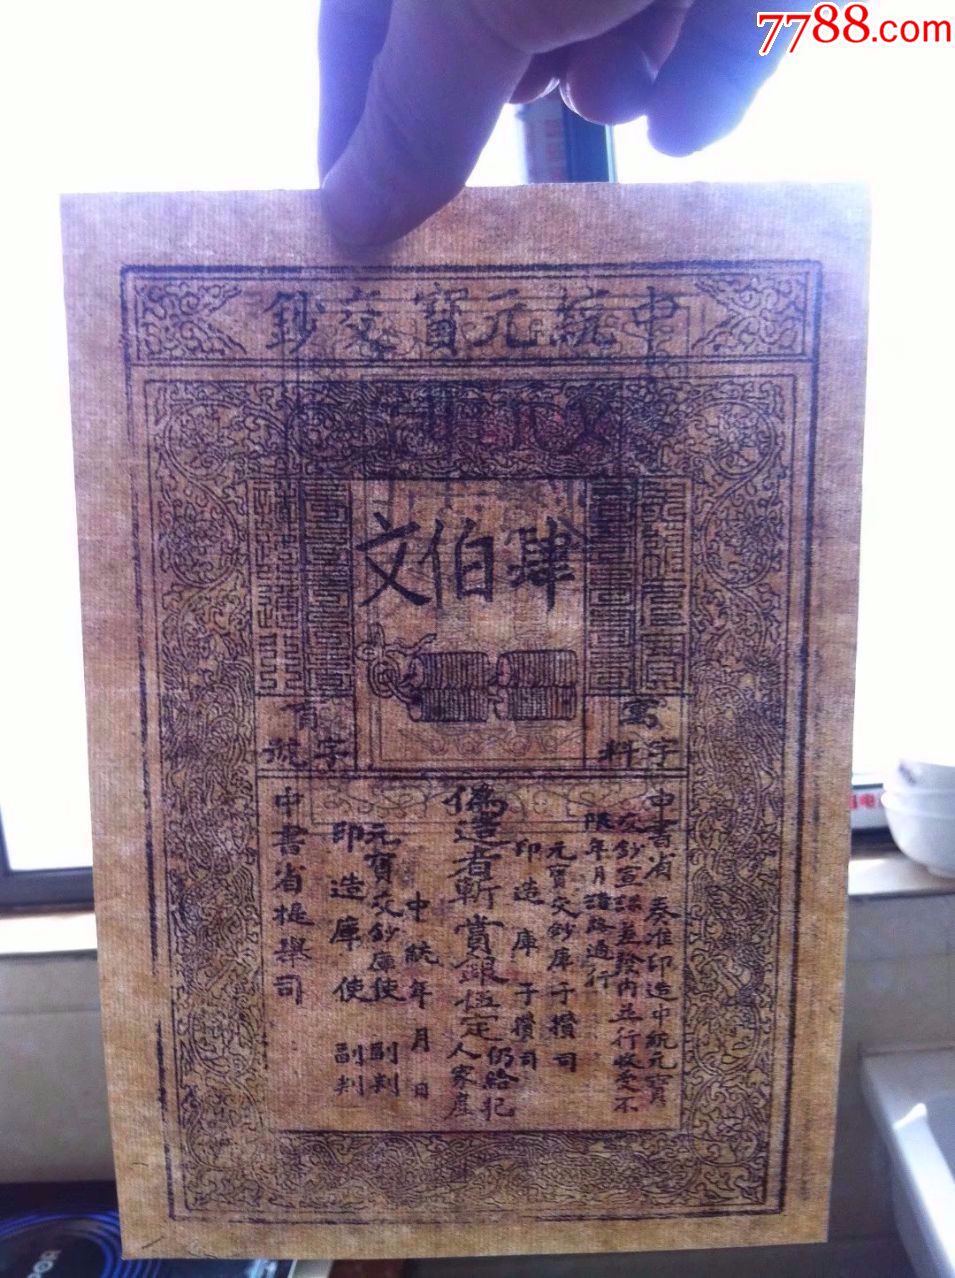 7788.com
中統元寶交鈔
肆伯文
字料
字號
中書省 奏准印造中統元寶
交鈔宣課差發內並行收受不
限年月諸路通行
元寶交鈔庫子攢司
印造庫子攢司
偽造者斬賞銀伍定
仍給犯
人家產
中統 年 月 日
元寶交鈔庫使 副判
印造庫使 副判
中書省提舉司